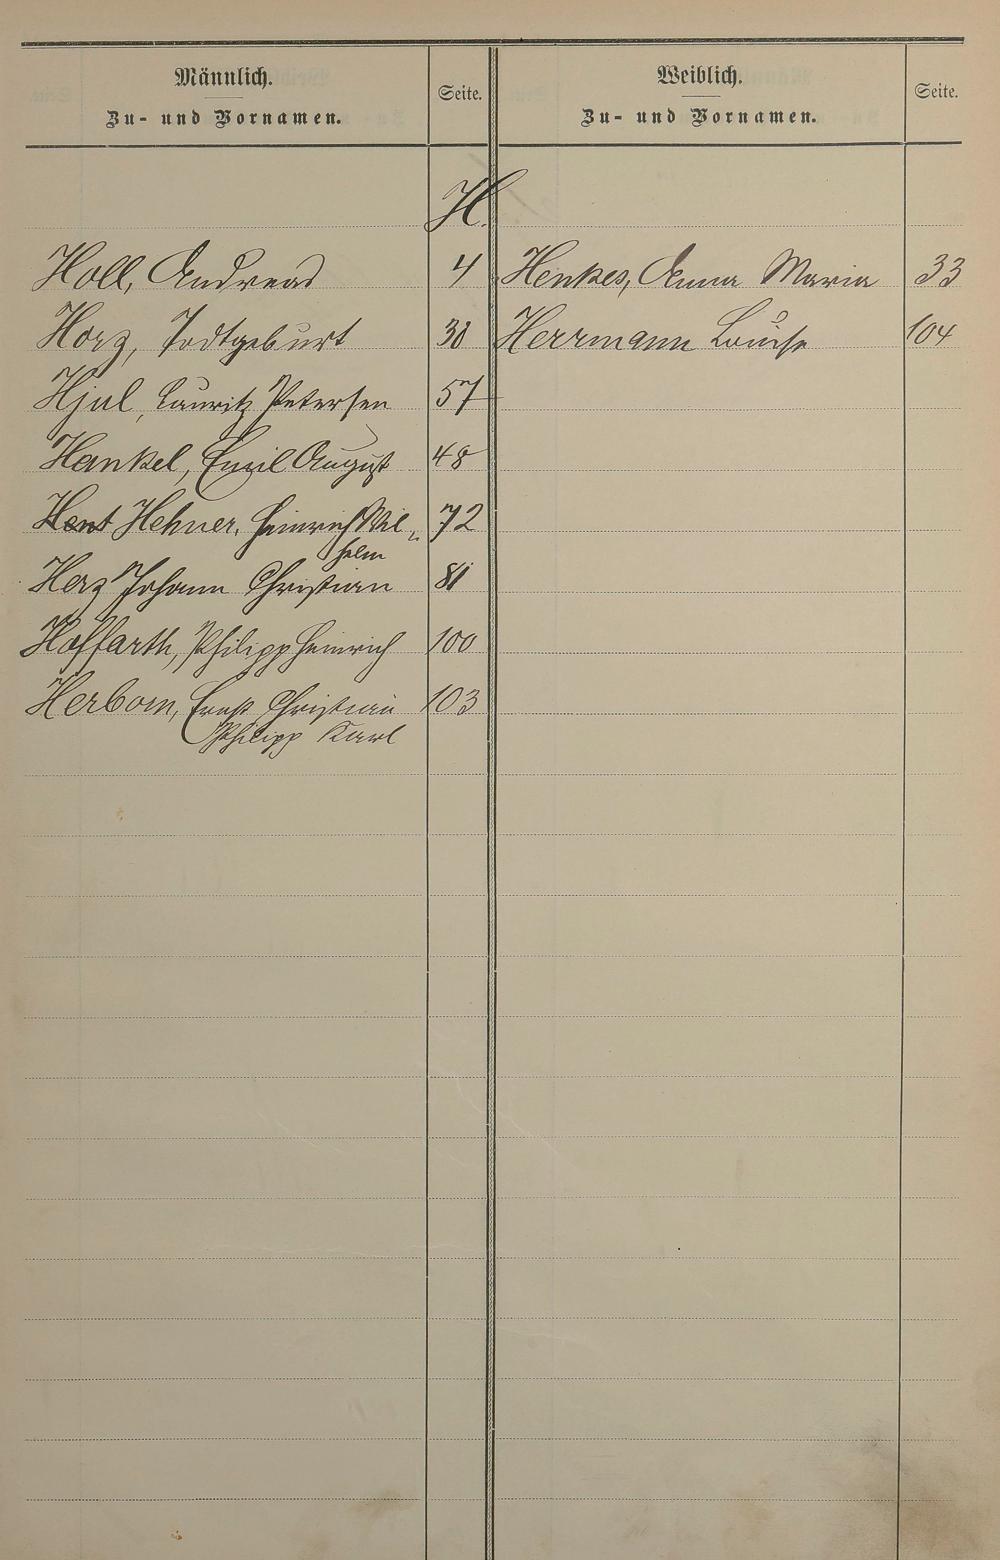 Männlich.
Zu- und Vornamen.
Seite.
Weiblich.
Zu- und Vornamen.
Seite.
H.
Holl, Andreas 4
Horz, Todtgeburt 30
Hjul, Lauritz Petersen 57
Hankel, Emil August 48
Hent Hehner, Heinrich Wil-
helm 72
Herz Johann Christian 81
Hoffarth, Philipp Heinrich 100
Herborn, Ernst Christian 103
Philipp Karl
Henkes, Anna Maria 33
Herrmann Louise 104